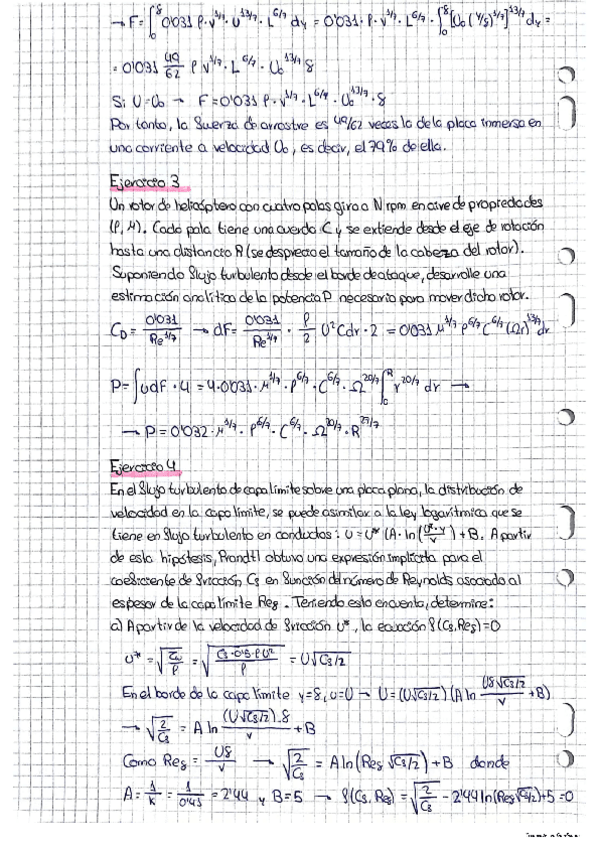 → F = ∫₀^δ 0'031 ρ·ν^1/7·U^13/7·L^6/7 dy = 0'031·ρ·ν^1/7·L^6/7·∫₀^δ [U₀(y/δ)^1/7]^13/7 dy =
= 0'031 49/62 ρ ν^1/7·L^6/7·U₀^13/7 δ
Si U=U₀ → F = 0'031 ρ·ν^1/7·L^6/7·U₀^13/7·δ
Por tanto, la fuerza de arrastre es 49/62 veces la de la placa inmersa en
una corriente a velocidad U₀, es decir, el 79% de ella.
Ejercicio 3
Un rotor de helicóptero con cuatro palas gira a N rpm en aire de propiedades
(ρ, μ). Cada pala tiene una cuerda C y se extiende desde el eje de rotación
hasta una distancia R (se desprecia el tamaño de la cabeza del rotor).
Suponiendo flujo turbulento desde el borde de ataque, desarrolle una
estimación analítica de la potencia P necesaria para mover dicho rotor.
C_D = 0'031/Re^1/7 → dF = 0'031/Re^1/7 · ρ/2 U² C dr · 2 = 0'031 μ^1/7 ρ^6/7 C^6/7 (Ωr)^13/7 dr
P = ∫ U dF · 4 = 4·0'031·μ^1/7·ρ^6/7·C^6/7·Ω^20/7 ∫₀^R r^20/7 dr →
→ P = 0'032·μ^1/7·ρ^6/7·C^6/7·Ω^20/7·R^27/7
Ejercicio 4
En el flujo turbulento de capa límite sobre una placa plana, la distribución de
velocidad en la capa límite, se puede asimilar a la ley logarítmica que se
tiene en flujo turbulento en conductos: U = U* (A·ln(U*·y/ν) + B. A partir
de esta hipótesis, Prandtl obtuvo una expresión implícita para el
coeficiente de fricción Cf en función del número de Reynolds asociado al
espesor de la capa límite Reδ. Teniendo esto en cuenta, determine:
a) A partir de la velocidad de fricción U*, la ecuación f(Cf, Reδ)=0
U* = √(τw/ρ) = √(Cf·0'5·ρU²/ρ) = U√(Cf/2)
En el borde de la capa límite y=δ, u=U → U = (U√(Cf/2)) (A ln Uδ√(Cf/2)/ν + B)
→ √(2/Cf) = A ln (U√(Cf/2))·δ/ν + B
Como Reδ = Uδ/ν → √(2/Cf) = A ln(Reδ √(Cf/2)) + B donde
A = 1/k = 1/0'41 = 2'44 y B=5 → f(Cf, Reδ) = √(2/Cf) - 2'44 ln(Reδ√(Cf/2)) + 5 = 0